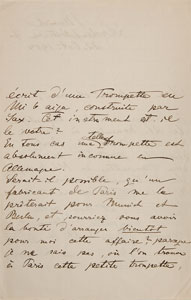 écrit d'une Trompette en
Mi b aigu, construite par
Sax. Cet instrument est-il
le votre?
En tous cas une telle trompette est
absolument inconnue en
Allemagne.
Serait-il possible, qu'un
fabricant de Paris me la
prêterait pour Munich et
Berlin, et pourriez vous avoir
la bonté d'arranger bientôt
pour moi cette affaire? parceque
je ne sais pas, où l'on trouve
à Paris cette petite trompette